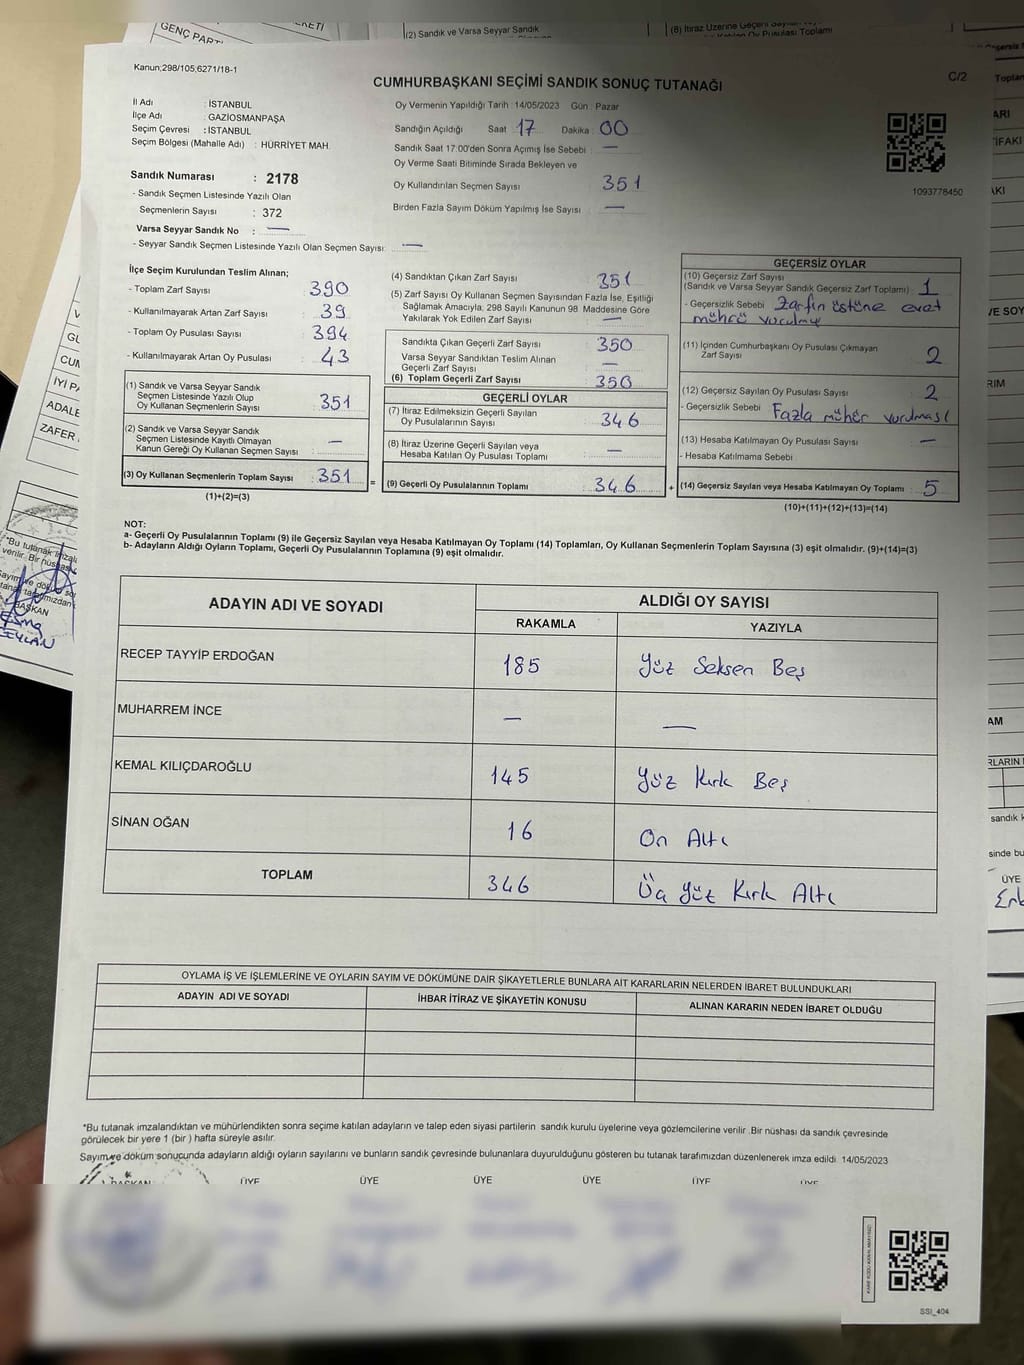 GENÇ PARTİ
(2) Sandık ve Varsa Seyyar Sandık
(8) İtiraz Üzerine Geçerli Sayılan
Kanun;298/105,6271/18-1
C/2
CUMHURBAŞKANI SEÇİMİ SANDIK SONUÇ TUTANAĞI
İl Adı : İSTANBUL
İlçe Adı : GAZİOSMANPAŞA
Seçim Çevresi : İSTANBUL
Seçim Bölgesi (Mahalle Adı) : HÜRRİYET MAH.
Sandık Numarası : 2178
- Sandık Seçmen Listesinde Yazılı Olan
Seçmenlerin Sayısı : 372
Varsa Seyyar Sandık No : —
- Seyyar Sandık Seçmen Listesinde Yazılı Olan Seçmen Sayısı: —
Oy Vermenin Yapıldığı Tarih : 14/05/2023 Gün : Pazar
Sandığın Açıldığı Saat : 17 Dakika : 00
Sandık Saat 17:00'den Sonra Açımış İse Sebebi : —
Oy Verme Saati Bitiminde Sırada Bekleyen ve
Oy Kullandırılan Seçmen Sayısı 351
Birden Fazla Sayım Döküm Yapılmış İse Sayısı : —
1093778450
İlçe Seçim Kurulundan Teslim Alınan;
- Toplam Zarf Sayısı : 390
- Kullanılmayarak Artan Zarf Sayısı : 39
- Toplam Oy Pusulası Sayısı : 394
- Kullanılmayarak Artan Oy Pusulası : 43
(1) Sandık ve Varsa Seyyar Sandık
Seçmen Listesinde Yazılı Olup
Oy Kullanan Seçmenlerin Sayısı : 351
(2) Sandık ve Varsa Seyyar Sandık
Seçmen Listesinde Kayıtlı Olmayan
Kanun Gereği Oy Kullanan Seçmen Sayısı : —
(3) Oy Kullanan Seçmenlerin Toplam Sayısı : 351
(1)+(2)=(3)
(4) Sandıktan Çıkan Zarf Sayısı : 351
(5) Zarf Sayısı Oy Kullanan Seçmen Sayısından Fazla İse, Eşitliği
Sağlamak Amacıyla, 298 Sayılı Kanunun 98 Maddesine Göre
Yakılarak Yok Edilen Zarf Sayısı : —
Sandıkta Çıkan Geçerli Zarf Sayısı : 350
Varsa Seyyar Sandıktan Teslim Alınan
Geçerli Zarf Sayısı : —
(6) Toplam Geçerli Zarf Sayısı : 350
GEÇERLİ OYLAR
(7) İtiraz Edilmeksizin Geçerli Sayılan
Oy Pusulalarının Sayısı : 346
(8) İtiraz Üzerine Geçerli Sayılan veya
Hesaba Katılan Oy Pusulası Toplamı : —
= (9) Geçerli Oy Pusulalarının Toplamı : 346
GEÇERSİZ OYLAR
(10) Geçersiz Zarf Sayısı
(Sandık ve Varsa Seyyar Sandık Geçersiz Zarf Toplamı) : 1
- Geçersizlik Sebebi : Zarfın üstüne evet
mührü vurulmuş
(11) İçinden Cumhurbaşkanı Oy Pusulası Çıkmayan
Zarf Sayısı : 2
(12) Geçersiz Sayılan Oy Pusulası Sayısı : 2
- Geçersizlik Sebebi : Fazla mühür vurulması
(13) Hesaba Katılmayan Oy Pusulası Sayısı : —
- Hesaba Katılmama Sebebi
+ (14) Geçersiz Sayılan veya Hesaba Katılmayan Oy Toplamı : 5
(10)+(11)+(12)+(13)=(14)
NOT:
a- Geçerli Oy Pusulalarının Toplamı (9) ile Geçersiz Sayılan veya Hesaba Katılmayan Oy Toplamı (14) Toplamları, Oy Kullanan Seçmenlerin Toplam Sayısına (3) eşit olmalıdır. (9)+(14)=(3)
b- Adayların Aldığı Oyların Toplamı, Geçerli Oy Pusulalarının Toplamına (9) eşit olmalıdır.
ADAYIN ADI VE SOYADI
ALDIĞI OY SAYISI
RAKAMLA YAZIYLA
RECEP TAYYİP ERDOĞAN 185 Yüz Seksen Beş
MUHARREM İNCE — —
KEMAL KILIÇDAROĞLU 145 Yüz Kırk Beş
SİNAN OĞAN 16 On Altı
TOPLAM 346 Üç Yüz Kırk Altı
OYLAMA İŞ VE İŞLEMLERİNE VE OYLARIN SAYIM VE DÖKÜMÜNE DAİR ŞİKAYETLERLE BUNLARA AİT KARARLARIN NELERDEN İBARET BULUNDUKLARI
ADAYIN ADI VE SOYADI İHBAR İTİRAZ VE ŞİKAYETİN KONUSU ALINAN KARARIN NEDEN İBARET OLDUĞU
*Bu tutanak imzalandıktan ve mühürlendikten sonra seçime katılan adayların ve talep eden siyasi partilerin sandık kurulu üyelerine veya gözlemcilerine verilir .Bir nüshası da sandık çevresinde
görülecek bir yere 1 (bir ) hafta süreyle asılır.
Sayım ve döküm sonucunda adayların aldığı oyların sayılarını ve bunların sandık çevresinde bulunanlara duyurulduğunu gösteren bu tutanak tarafımızdan düzenlenerek imza edildi. 14/05/2023
BAŞKAN ÜYE ÜYE ÜYE ÜYE ÜYE ÜYE
SSI_404
İYİ PA
ADALE
ZAFER
BAŞKAN
ÜYE